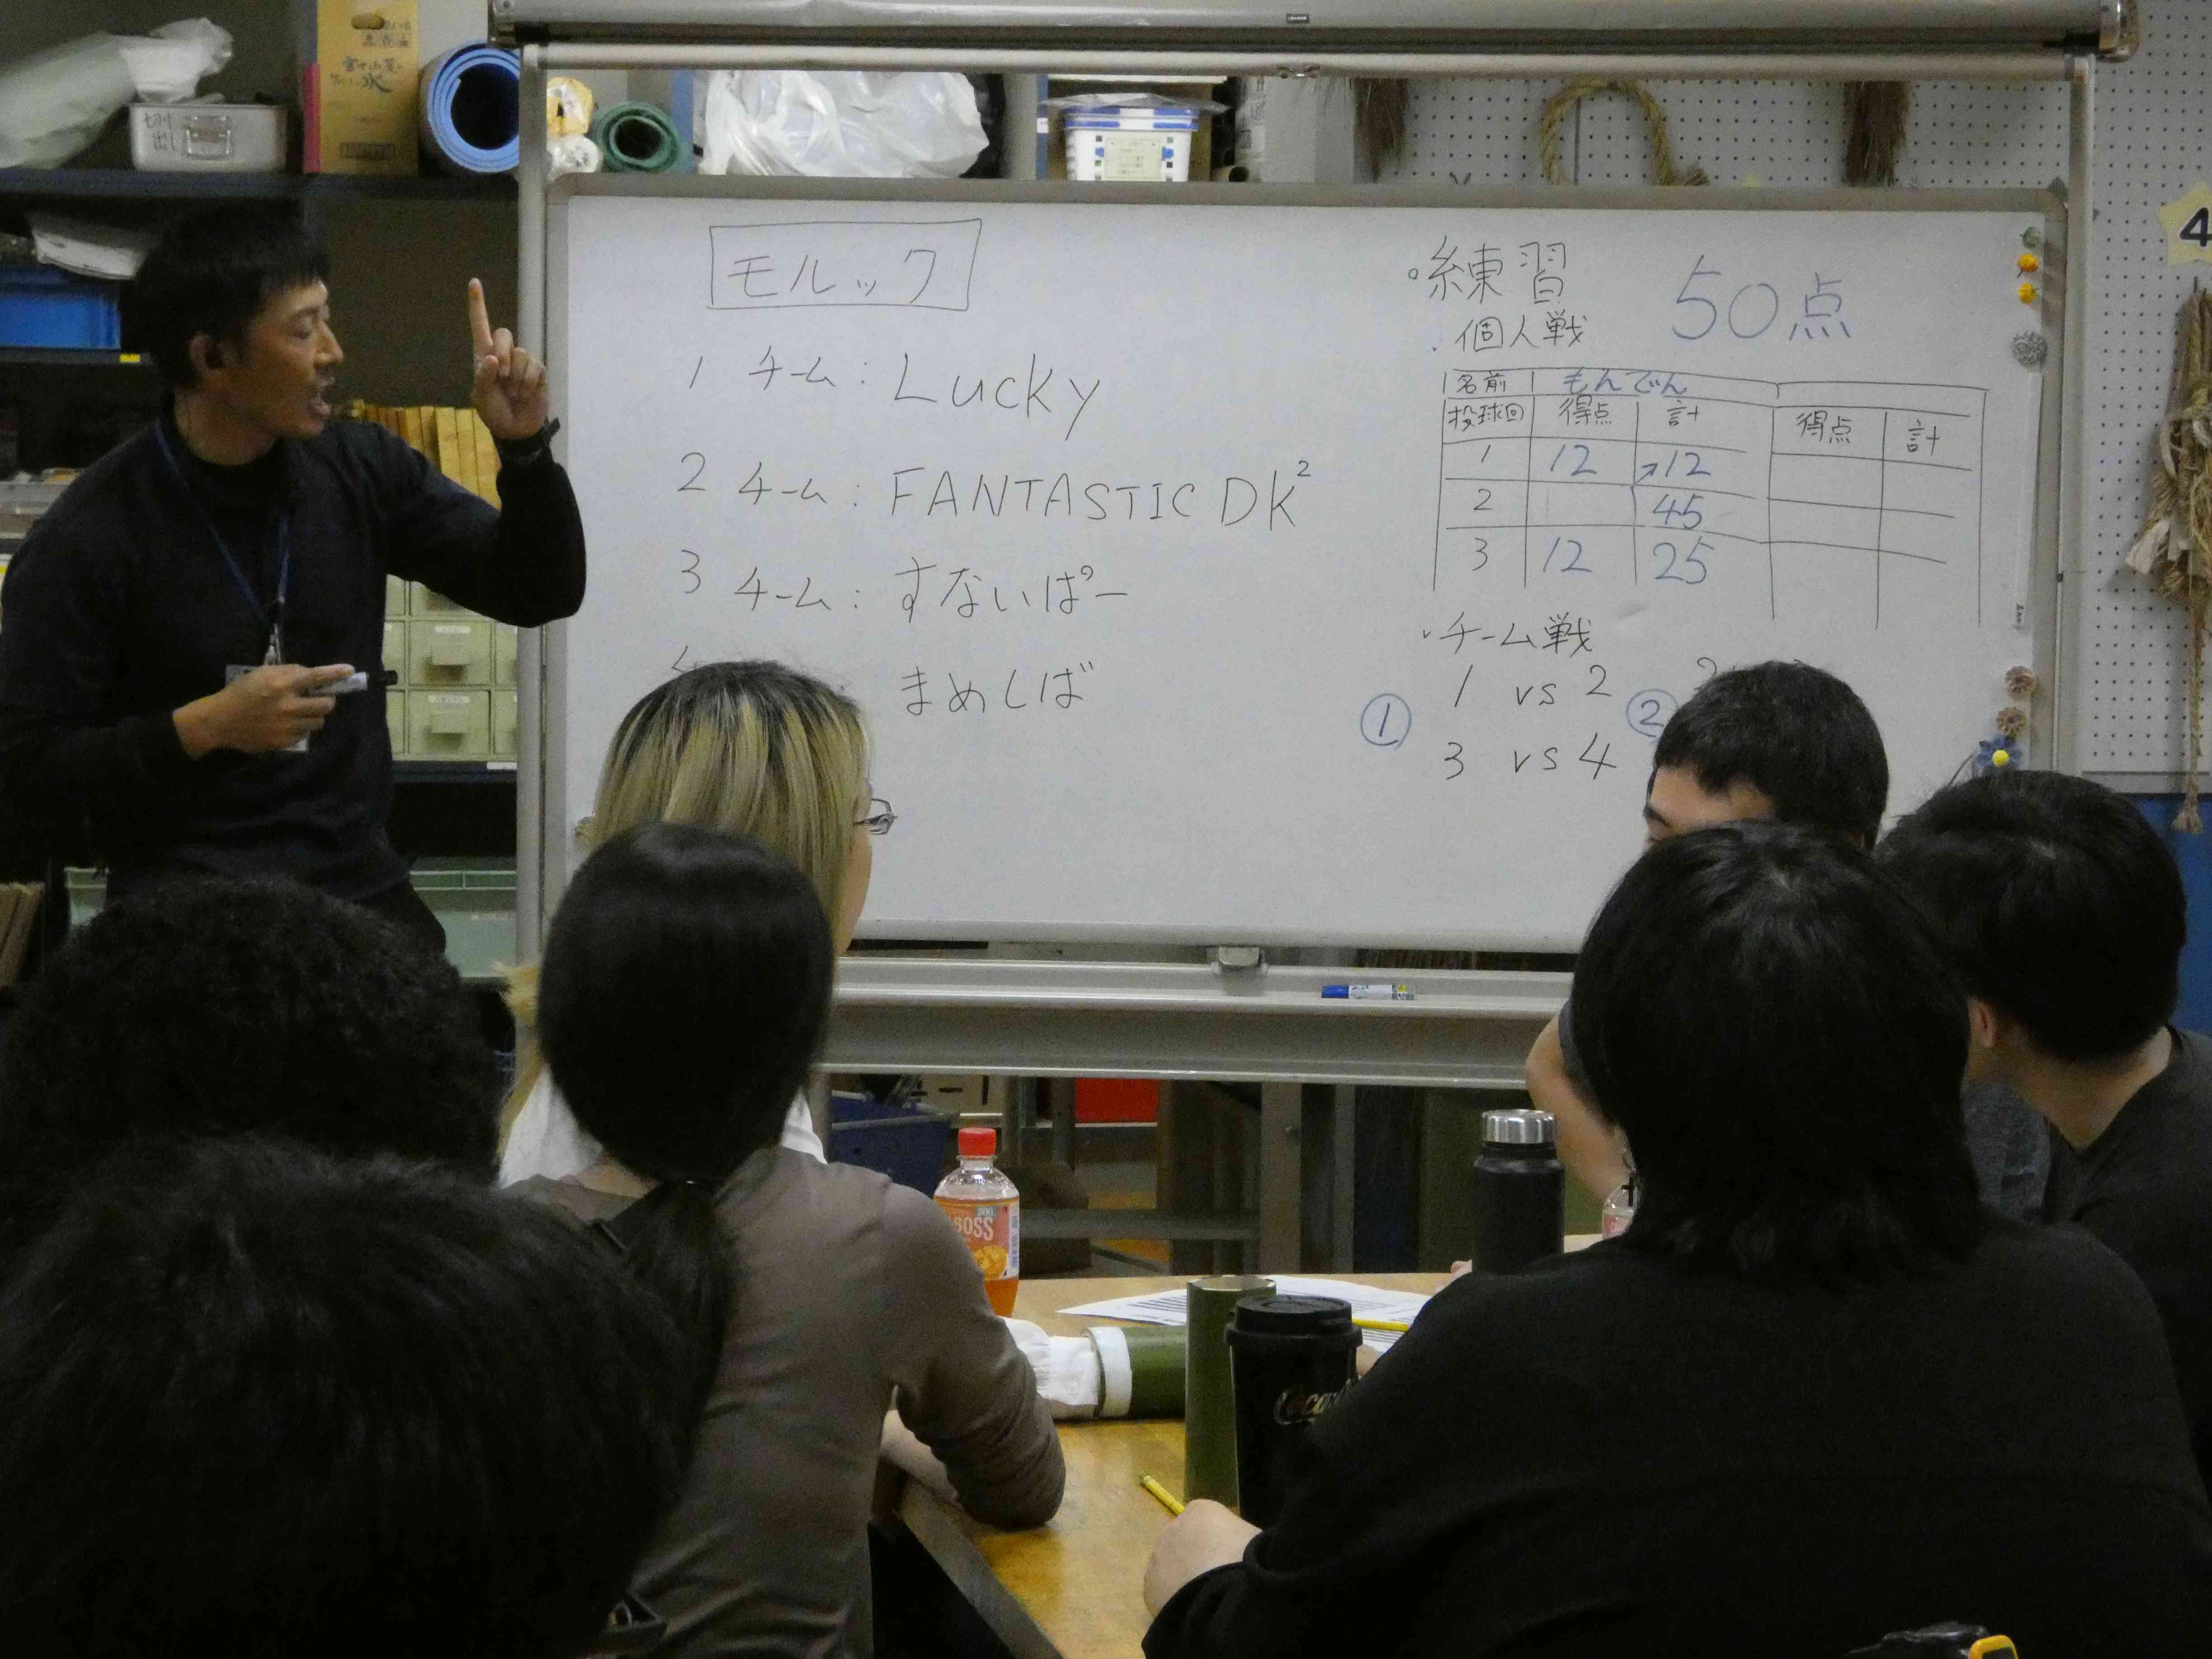 切り出し
モルック
1 チーム: Lucky
2 チーム: FANTASTIC DK²
3 チーム: すないぱー
まめしば
。練習 50点
・個人戦
名前 もんでん
投球回 得点 計 得点 計
1 12 →12
2 45
3 12 25
・チーム戦
① 1 vs 2 ②
3 vs 4
4
BOSS